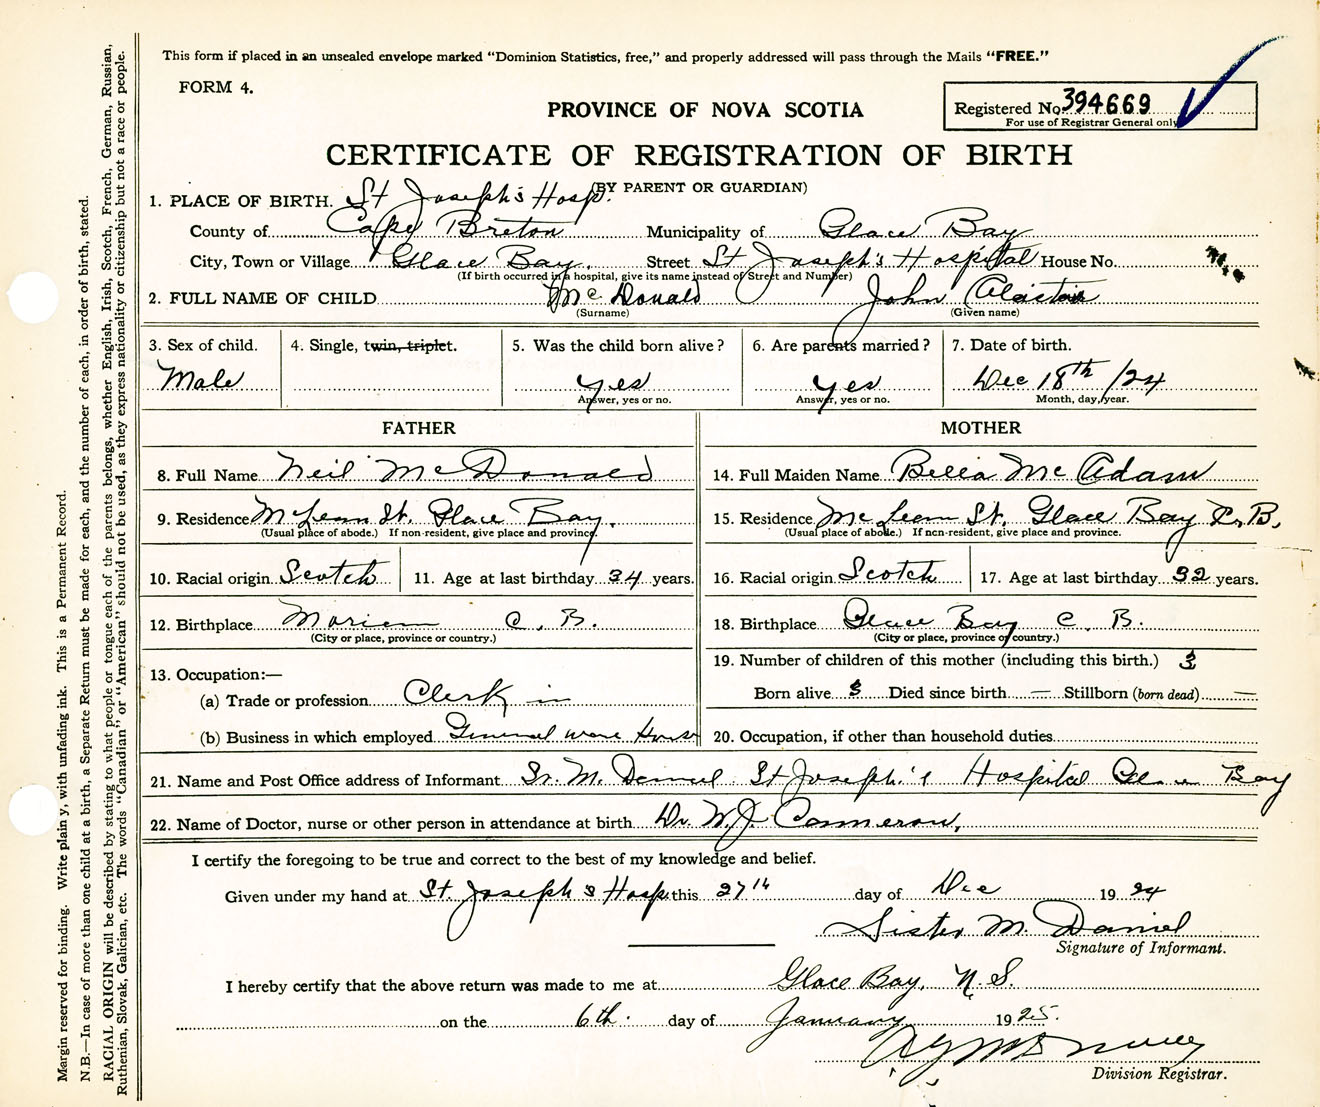 This form if placed in an unsealed envelope marked "Dominion Statistics, free," and properly addressed will pass through the Mails "FREE."
FORM 4.
PROVINCE OF NOVA SCOTIA
Registered No. 394669
For use of Registrar General only
CERTIFICATE OF REGISTRATION OF BIRTH
(BY PARENT OR GUARDIAN)
1. PLACE OF BIRTH. St Joseph's Hosp.
County of Cape Breton Municipality of Glace Bay
City, Town or Village Glace Bay. Street St Joseph's Hospital House No.
(If birth occurred in a hospital, give its name instead of Street and Number)
2. FULL NAME OF CHILD McDonald John Alastair
(Surname) (Given name)
3. Sex of child. 4. Single, twin, triplet. 5. Was the child born alive? 6. Are parents married? 7. Date of birth.
Male yes yes Dec 18th /24
Answer, yes or no. Answer, yes or no. Month, day, year.
FATHER MOTHER
8. Full Name Neil McDonald 14. Full Maiden Name Bella McAdam
9. Residence McLean St. Glace Bay. 15. Residence McLean St. Glace Bay C.B.
(Usual place of abode.) If non-resident, give place and province. (Usual place of abode.) If non-resident, give place and province.
10. Racial origin Scotch 11. Age at last birthday 34 years. 16. Racial origin Scotch 17. Age at last birthday 32 years.
12. Birthplace Marion C. B. 18. Birthplace Glace Bay C. B.
(City or place, province or country.) (City or place, province or country.)
13. Occupation:— 19. Number of children of this mother (including this birth.) 3
(a) Trade or profession Clerk in Born alive 3 Died since birth — Stillborn (born dead) —
(b) Business in which employed General ware House 20. Occupation, if other than household duties
21. Name and Post Office address of Informant Sr. M. Daniel St Joseph's Hospital Glace Bay
22. Name of Doctor, nurse or other person in attendance at birth Dr. W. J. Cameron.
I certify the foregoing to be true and correct to the best of my knowledge and belief.
Given under my hand at St Joseph's Hosp. this 27th day of Dec 1924
Sister M. Daniel
Signature of Informant.
I hereby certify that the above return was made to me at Glace Bay, N. S.
on the 6th. day of January 1925.
Division Registrar.
Margin reserved for binding. Write plainly, with unfading ink. This is a Permanent Record.
N.B.—In case of more than one child at a birth, a Separate Return must be made for each, and the number of each, in order of birth, stated.
RACIAL ORIGIN will be described by stating to what people or tongue each of the parents belongs, whether English, Irish, Scotch, French, German, Russian,
Ruthenian, Slovak, Galician, etc. The words "Canadian" or "American" should not be used, as they express nationality or citizenship but not a race or people.